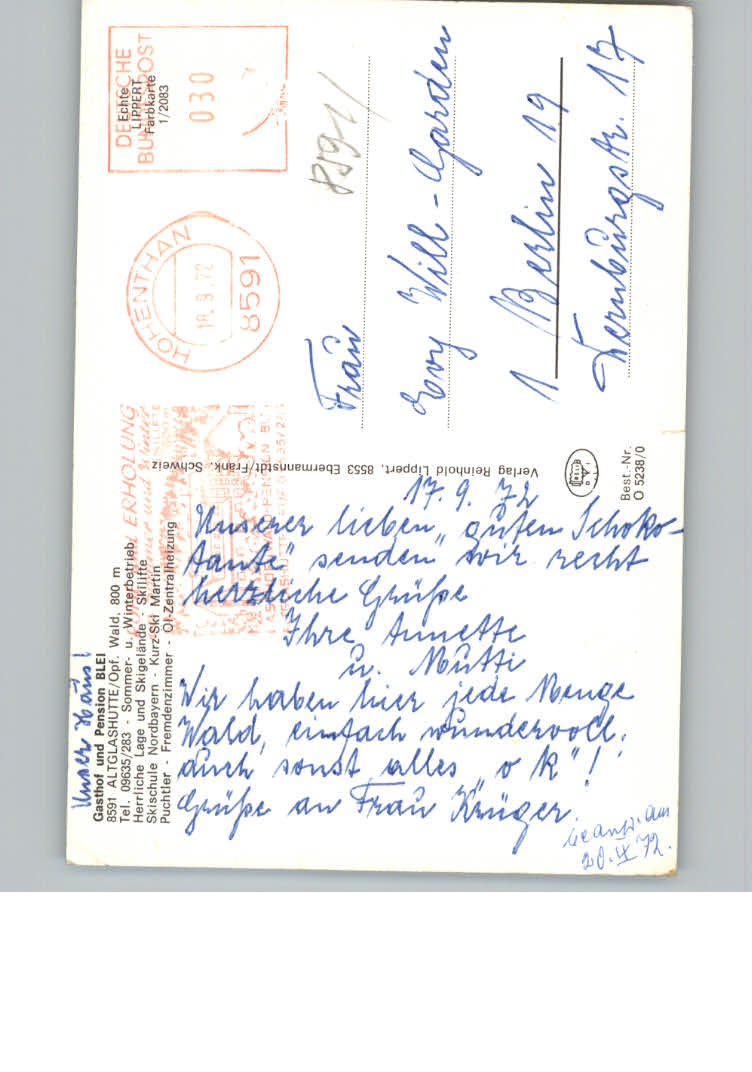 Unser Haus!
Gasthof und Pension BLEI
8591 ALTGLASHUTTE/Opf. Wald, 800 m
Tel. 09635/283 - Sommer- u. Winterbetrieb
Herrliche Lage und Skigelände - Skilifte
Skischule Nordbayern - Kurz-Ski Martin
Puchtler - Fremdenzimmer - Öl-Zentralheizung
17. 9. 72
Unserer lieben „guten Schoko-
tante" senden wir recht
herzliche Grüße
Ihre Annette
u. Mutti
Wir haben hier jede Menge
Wald, einfach wundervoll.
auch sonst alles „o k"!
Grüße an Frau Krüger.
beantw. am
20. IX 72.
Verlag Reinhold Lippert, 8553 Ebermannstdt/Fränk. Schweiz
Best.-Nr.
O 5238/0
ERHOLUNG
HOHENTHAN
18.9.72
8591
DEUTSCHE
BUNDESPOST
030
Echte
LIPPERT
Farbkarte
1/2083
8591
Frau
Evy Will-Garden
1 Berlin 19
Dernburgstr. 17